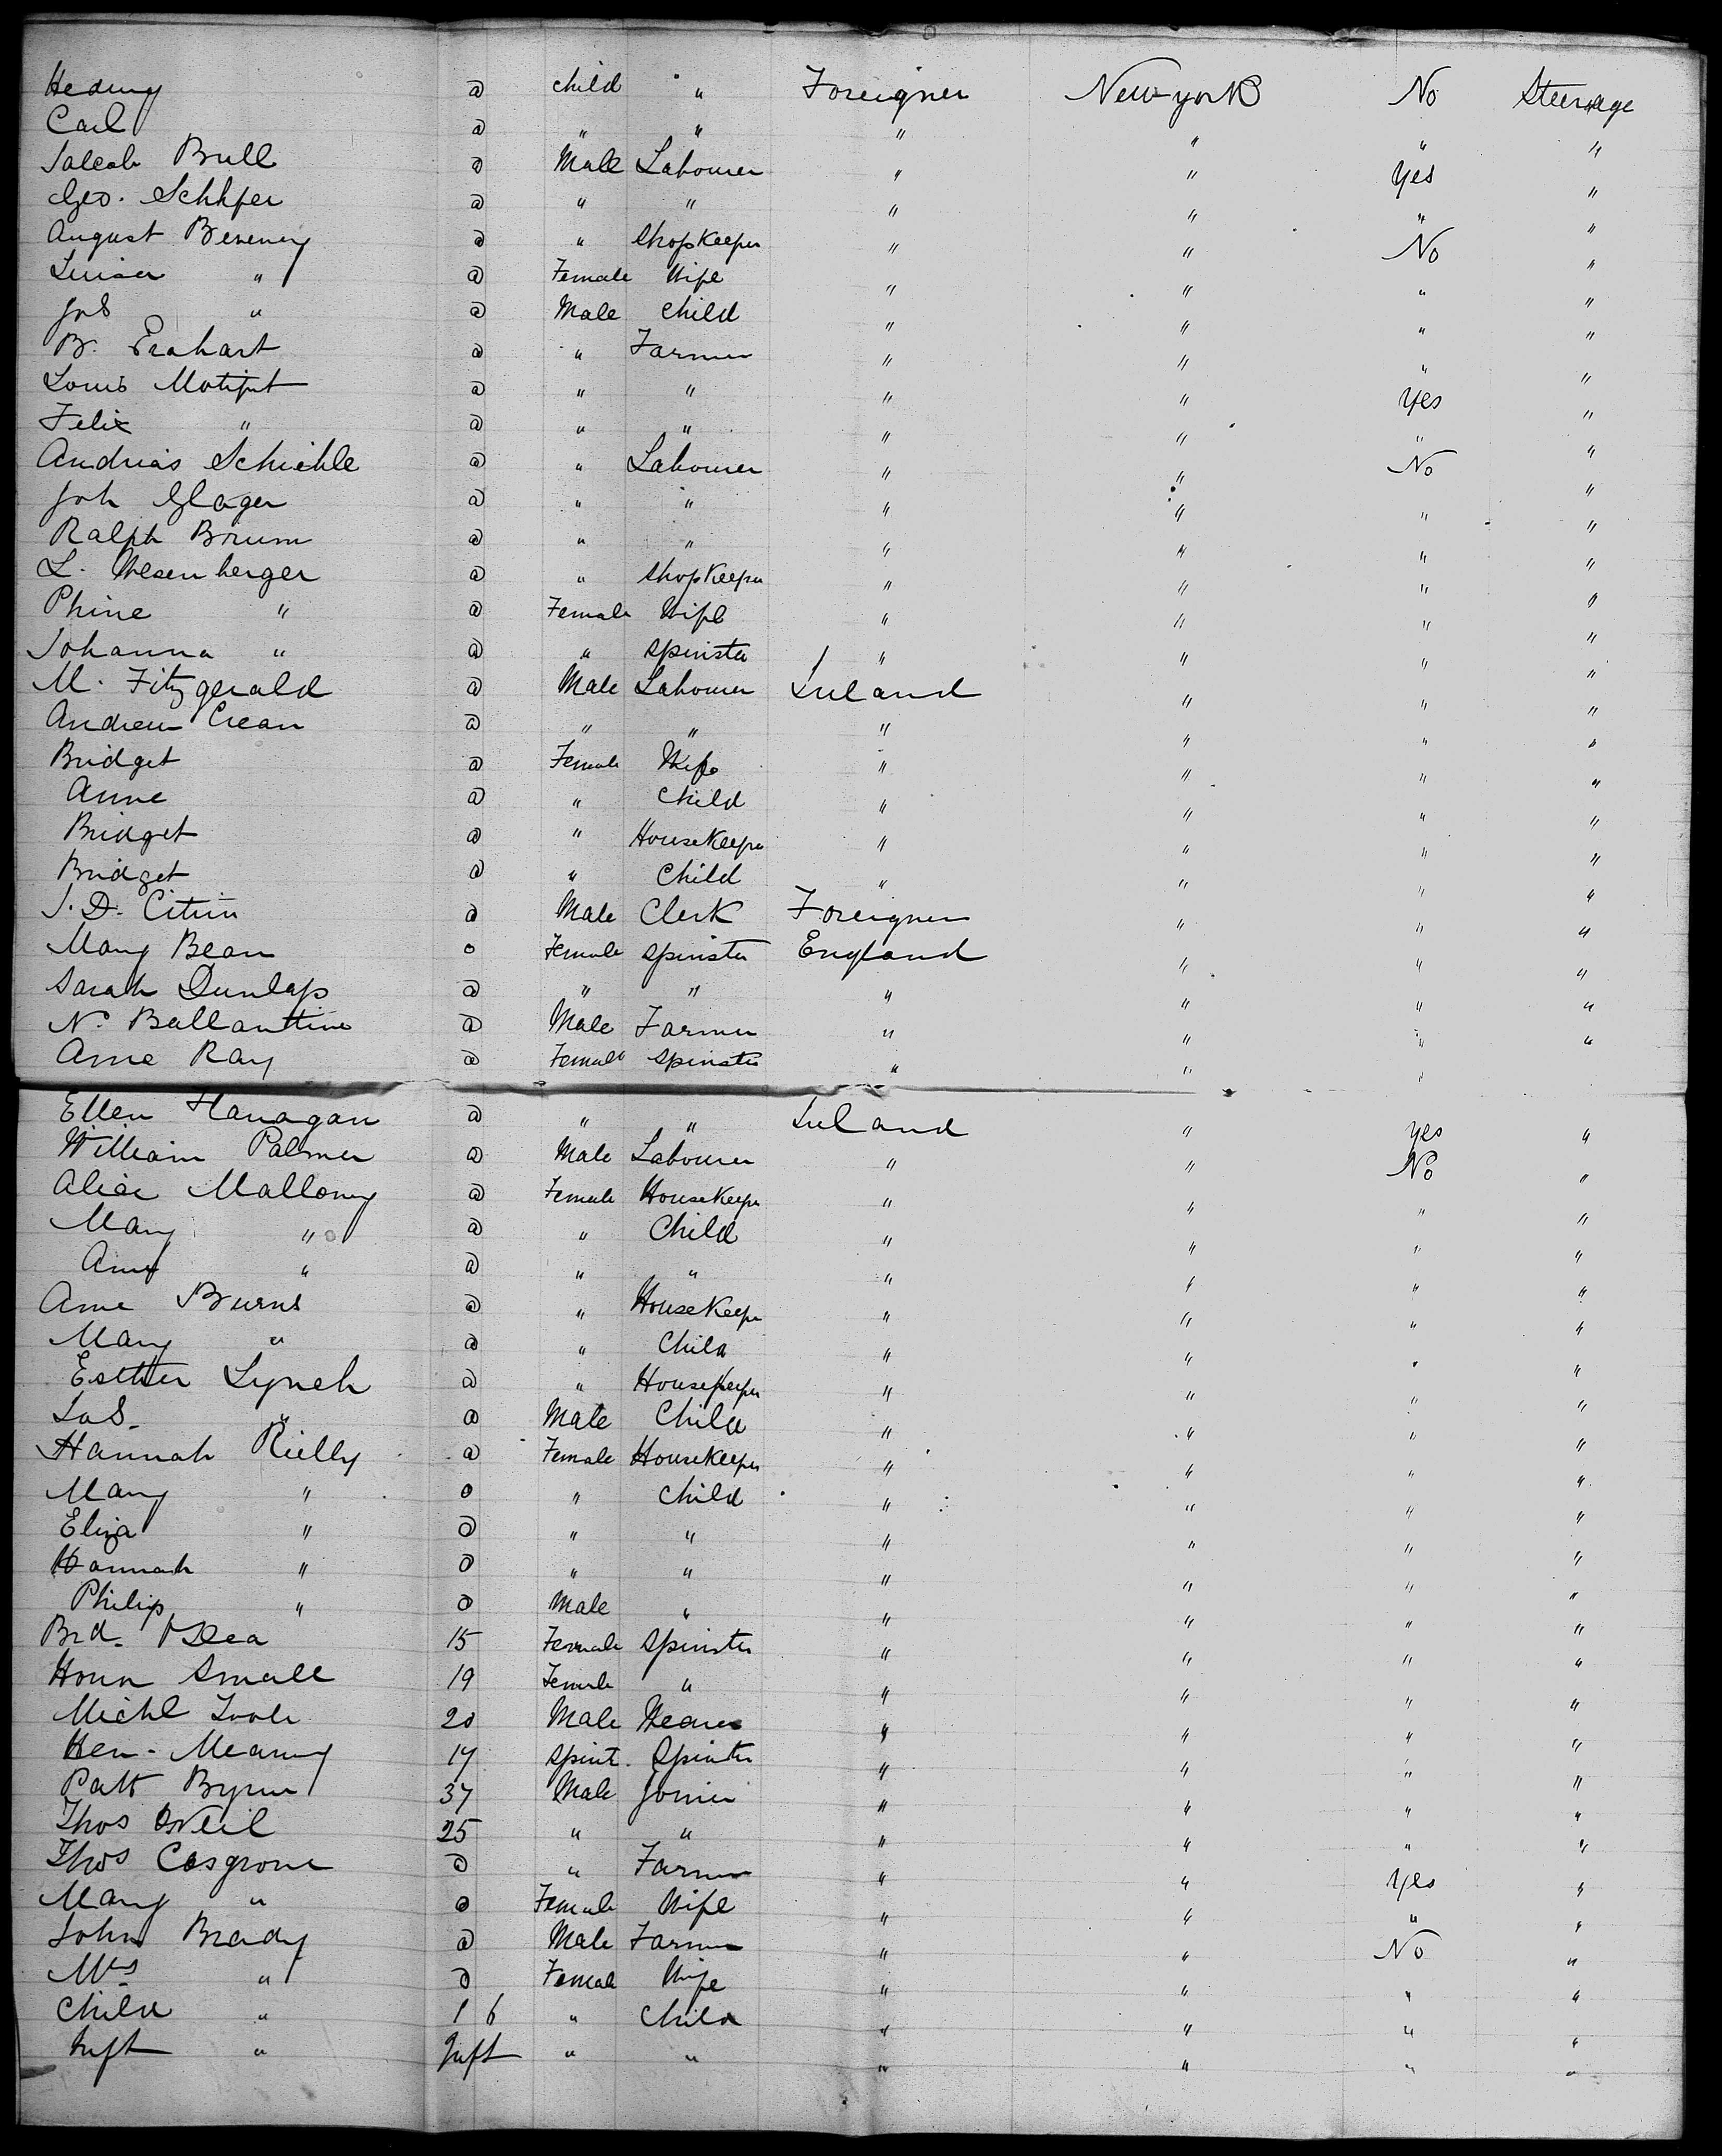 Hedwig @ child " Foreigner New-york No Steerage
Carl @ " " " " " "
Jaleob Bull @ Male Labourer " " Yes "
Geo. Schhfer @ " " " " " "
August @ " Shopkeeper " " No "
Luisa " @ Female Wife " " " "
Jos " @ Male Child " " " "
B. Erahart @ " Farmer " " " "
Louis @ " " " " Yes "
Felix " @ " " " " " "
Andrias Schiehle @ " Labourer " " No "
Joh Glager @ " " " " " "
Ralph Brum @ " " " " " "
L. Wesenberger @ " Shopkeeper " " " "
Phine " @ Female Wife " " " "
Johanna " @ " Spinster " " " "
M. Fitzgerald @ Male Labourer Ireland " " "
Andrew Crean @ " " " " " "
Bridget @ Female Wife " " " "
Anne @ " Child " " " "
Bridget @ " HouseKeeper " " " "
Bridget @ " Child " " " "
J. D. Citrin @ Male Clerk Foreigner " " "
Mary Bean o Female Spinster England " " "
Sarah Dunlap @ " " " " " "
N. Ballantine @ Male Farmer " " " "
Anne Ray @ Female Spinster " " "
Ellen Flanagan @ " " Ireland " yes "
William Palmer @ Male Labourer " " No "
Alice Mallony @ Female HouseKeeper " " " "
Mary " @ " Child " " " "
Amy " @ " " " " " "
Anne Burns @ " HouseKeeper " " " "
Mary " @ " Child " " " "
Esther Lynch @ " Housekeeper " " " "
Jas. " @ Male Child " " " "
Hannah Rielly @ Female HouseKeeper " " " "
Mary " o " Child " " " "
Eliza " @ " " " " " "
Hannah " o " " " " " "
Philip " o Male " " " " "
Brd. O'Dea 15 Female Spinster " " " "
Honr Small 19 Female " " " " "
Michl Toole 20 Male Weaver " " " "
Hen. Meany 17 Spint. Spinster " " " "
Patt Byrne 37 Male Joiner " " " "
Thos O'Neil 25 " " " " " "
Thos Cosgrove @ " Farmer " " Yes "
Mary " o Female Wife " " " "
John Brady @ Male Farmer " " No "
Mrs " @ Female Wife " " " "
Child " 1 6 " Child " " " "
Inft " Inft " " " " " "